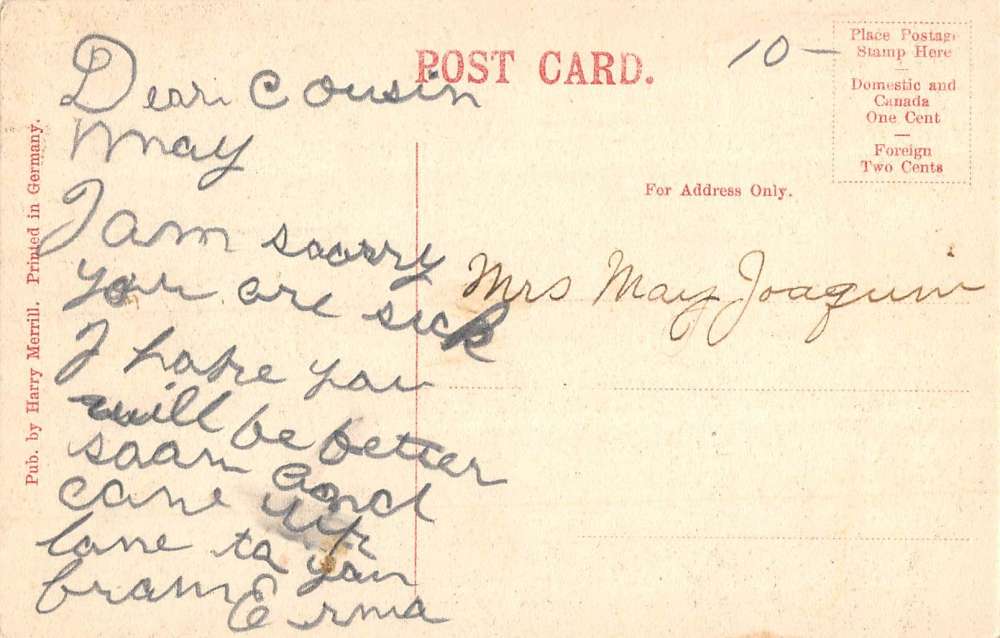 POST CARD.
10—
Place Postage
Stamp Here
—
Domestic and
Canada
One Cent
—
Foreign
Two Cents
For Address Only.
Pub. by Harry Merrill. Printed in Germany.
Dear Cousin
May
I am soorry
you are sick
I hope you
will be better
soon and
come up
love to you
from Erma
Mrs May Joaquin